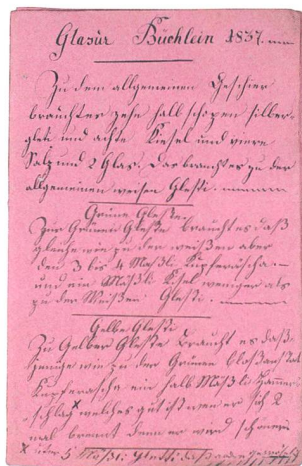 Glasür Büchlein 1837.
Zu dem allgemeinen Geschier
brauchts zehn halb schopen silber
glett und achte Kiesel und viere
Salz und 2 Glas. Das braucht es zu der
allgemeinen weisen Glesti.
Grüne Glesti
Zur Grünen Glesti braucht es daß
gleiche wie zu der weißen aber
den 3 bis 4 Mäßli Kupferäscha.
und ein Mäßli Kisel weniger als
zu der Weißen Glesti.
Gelbe Glesti
Zu Gelber Glesti braucht es daß
wie zu der Grünen bloß anstat
Kupferäscha ein halb Mäßli Hammer
schlag welches gut ist wen er sch 2
mal brennt denn er werd schöner
x oder 5 Mäßli